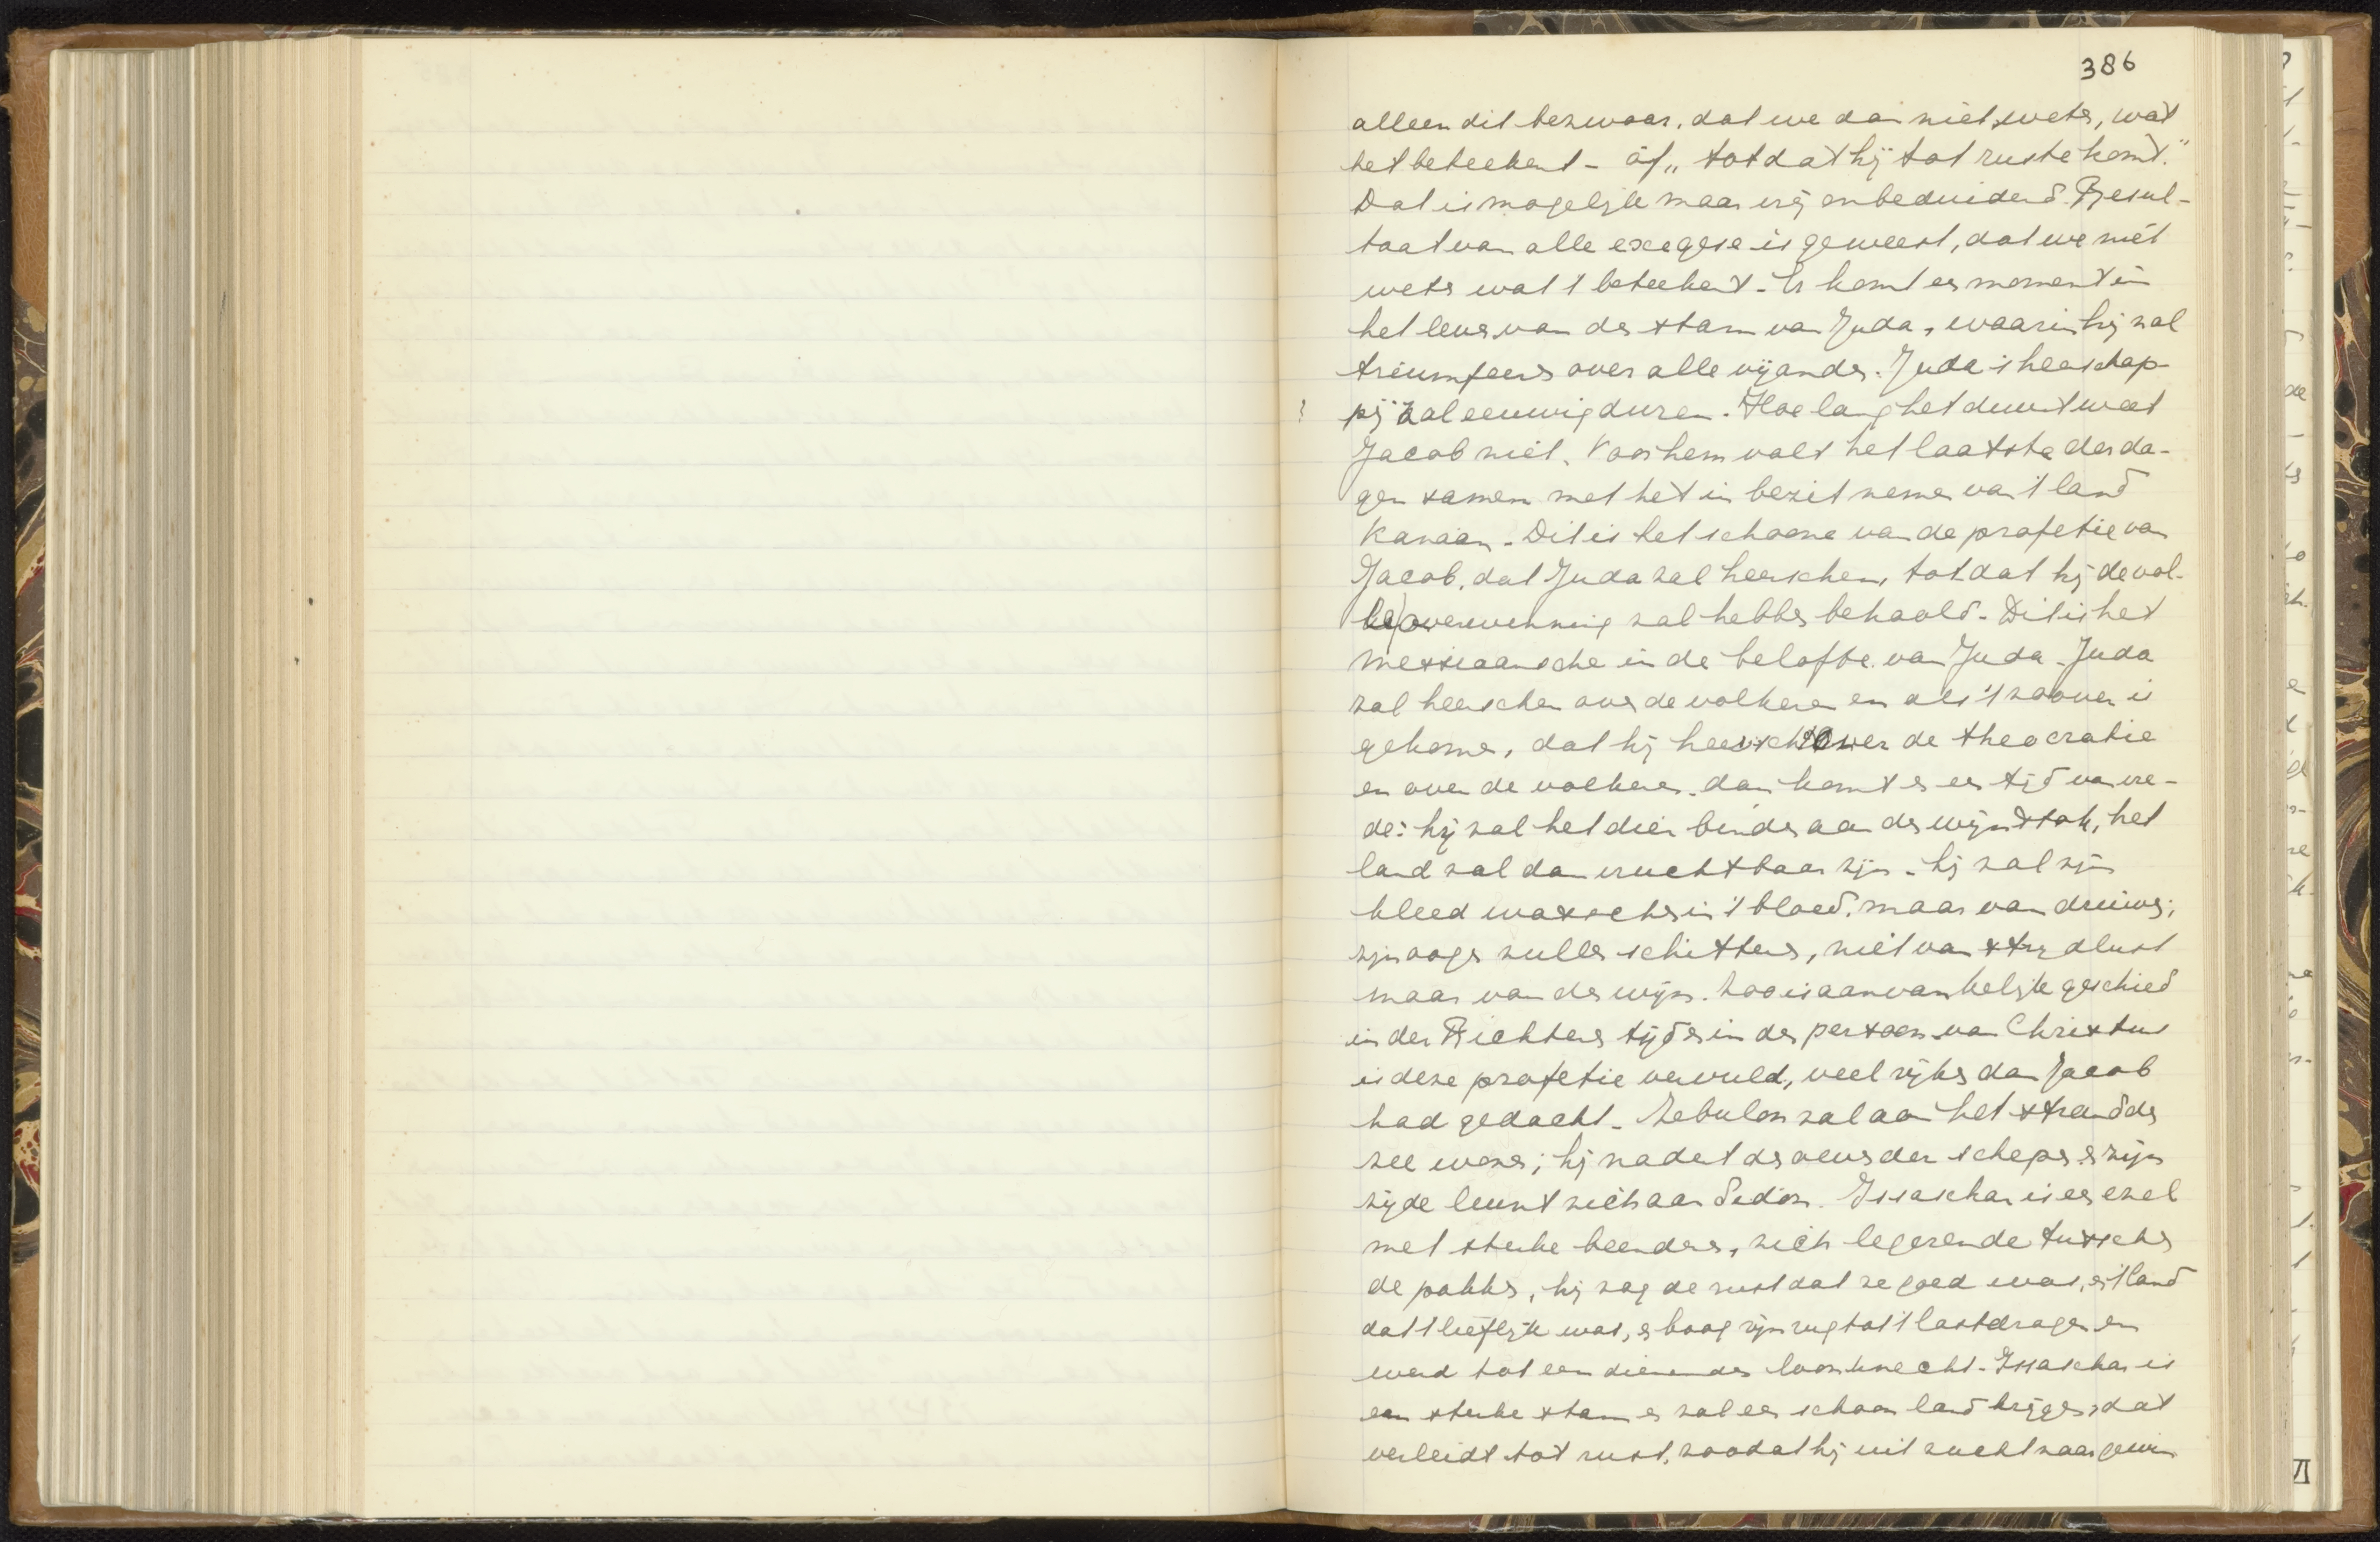 386
alleen dit bezwaar, dat we dan niet weten, wat
het beteekent - óf „totdat hij tot ruste komt."
Dat is mogelijk maar vrij onbeduidend. Resul-
taat van alle exegese is geweest, dat we niet
weten wat 't beteekent. Er komt een moment in
het leven van den stam van Juda, waarin hij zal
triumfeeren over alle vijanden. Juda's heerschap-
pij zal eeuwig duren. Hoe lang het duurt weet
Jacob niet. Voor hem valt het laatste der da-
gen samen met het in bezit nemen van 't land
Kanaän. Dit is het schoone van de profetie van
Jacob, dat Juda zal heerschen, totdat hij de vol-
le overwinning zal hebben behaald. Dit is het
messiaansche in de belofte van Juda. Juda
zal heerschen over de volkeren en als 't zoover is
gekomen, dat hij heerscht over de theocratie
en over de volkeren, dan komt er een tijd van vre-
de: hij zal het dier binden aan den wijnstok, het
land zal dan vruchtbaar zijn. Hij zal zijn
kleed wasschen in 't bloed, maar van druiven;
zijn oogen zullen schitteren, niet van strijdlust
maar van den wijn. Zoo is aanvankelijk geschied
in den Richterentijd en in den persoon van Christus
is deze profetie vervuld, veel rijker dan Jacob
had gedacht. Zebulon zal aan het strand der
zee wonen; hij nadert den oever der schepen en zijn
zijde leunt zich aan Sidon. Issaschar is een ezel
met sterke beenderen, zich legerende tusschen
de pakken, hij zag de rust dat ze goed was, en 't land
dat 't liefelijk was, en boog zijn rug tot 't lastdragen en
werd tot een dienenden loonknecht. Issaschar is
een sterke stam en zal een schoon land krijgen, dat
verleidt tot rust, zoodat hij uit zucht naar gewin